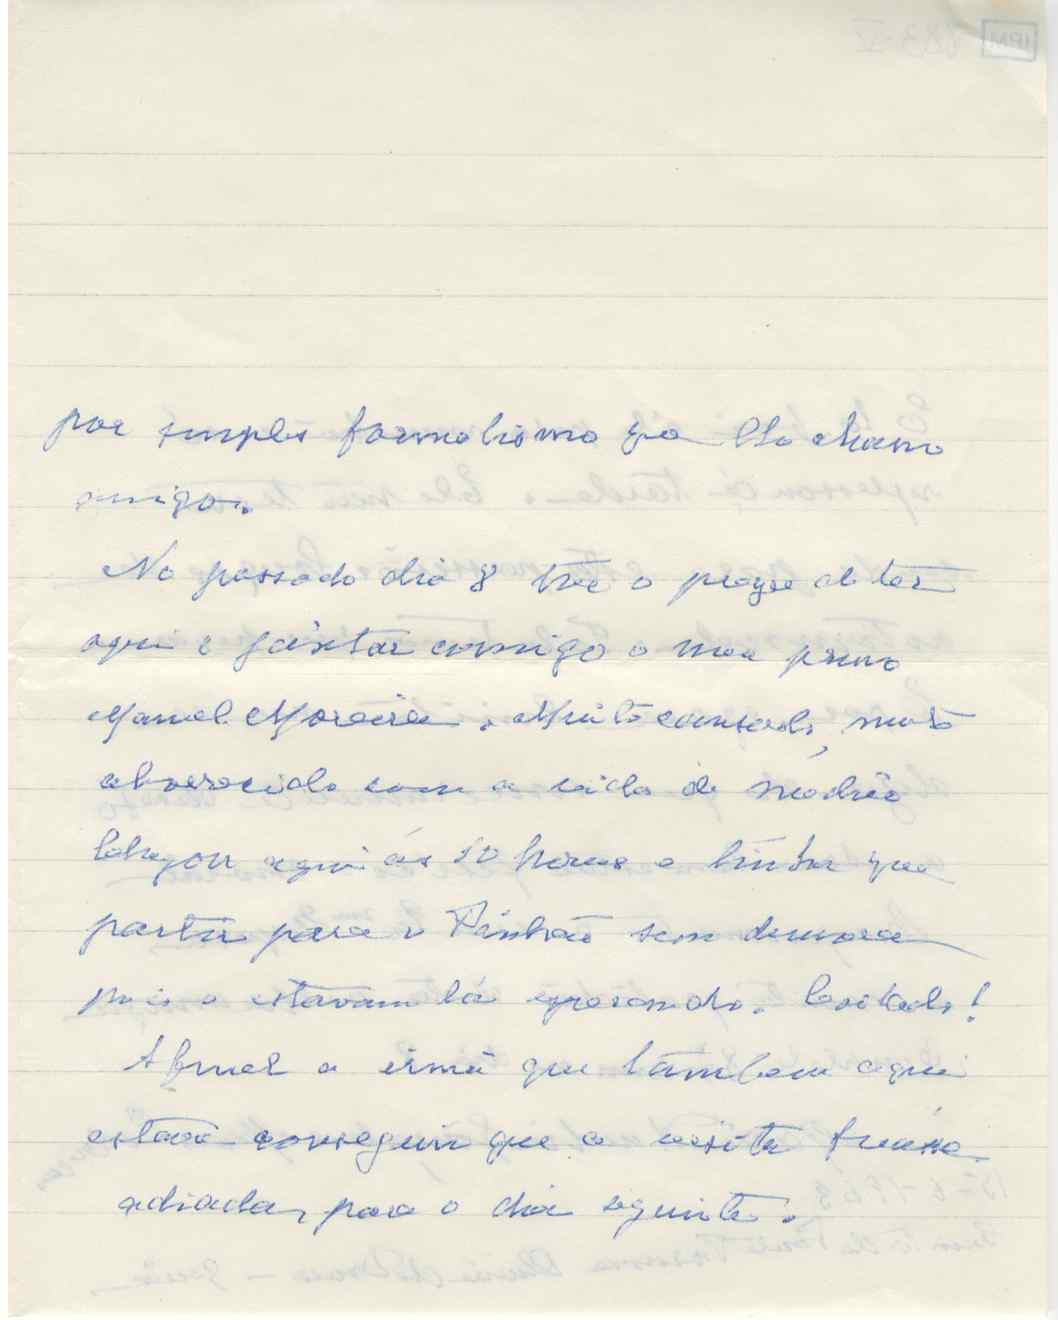 por simples formalismo que lhe chamo
amigo.
No passado dia 8 tive o prazer de ter
aqui e jantar comigo o meu primo
Manuel Moreira. Muito cansado, muito
aborrecido com a vida de médico
chegou aqui ás 20 horas e tinha que
partir para o Pinhão sem demora
pois o estavam lá esperando. Coitado!
Afinal a irmã que tambem aqui
estava conseguiu que a visita fosse
adiada, para o dia seguinte.